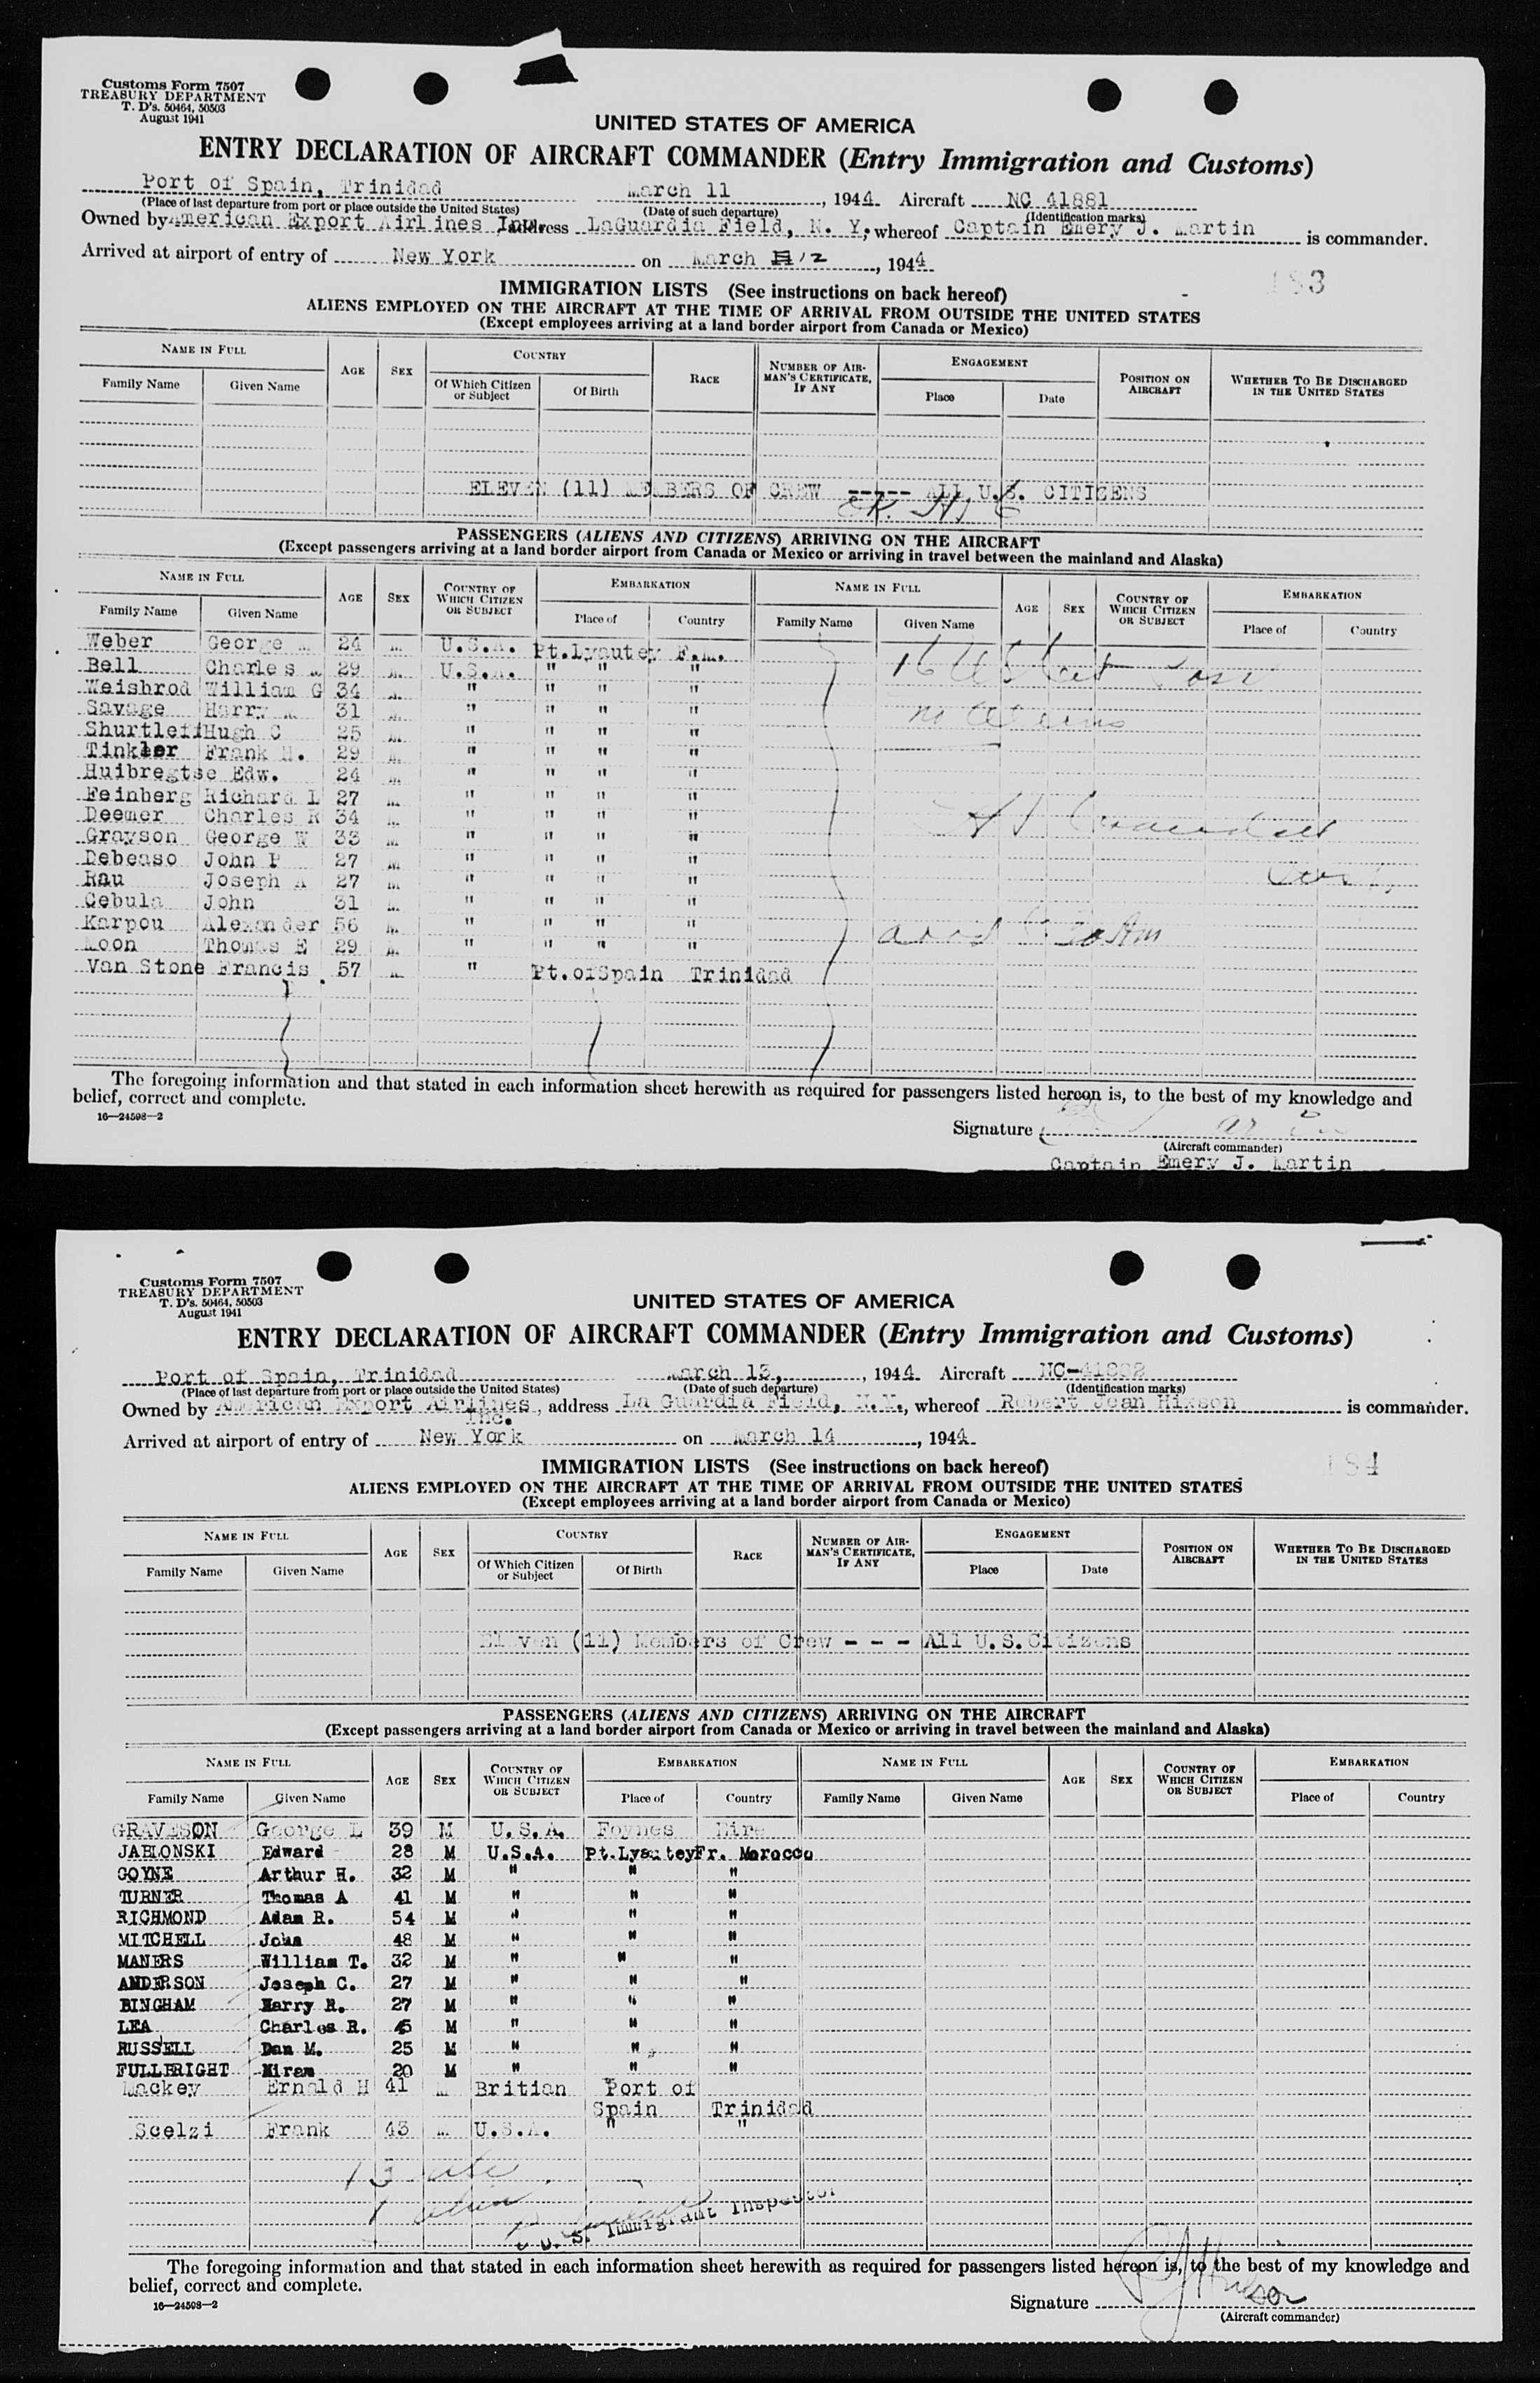 Customs Form 7507
TREASURY DEPARTMENT
T. D's. 50464, 50503
August 1941
UNITED STATES OF AMERICA
ENTRY DECLARATION OF AIRCRAFT COMMANDER (Entry Immigration and Customs)
Port of Spain, Trinidad March 11, 1944 Aircraft NC 41881
(Place of last departure from port or place outside the United States) (Date of such departure) (Identification marks)
Owned by American Export Airlines Inc. address LaGuardia Field, N. Y., whereof Captain Emery J. Martin is commander.
Arrived at airport of entry of New York on March 12, 1944
183
IMMIGRATION LISTS (See instructions on back hereof)
ALIENS EMPLOYED ON THE AIRCRAFT AT THE TIME OF ARRIVAL FROM OUTSIDE THE UNITED STATES
(Except employees arriving at a land border airport from Canada or Mexico)
NAME IN FULL AGE SEX COUNTRY RACE NUMBER OF AIRMAN'S CERTIFICATE, IF ANY ENGAGEMENT POSITION ON AIRCRAFT WHETHER TO BE DISCHARGED IN THE UNITED STATES
Family Name Given Name Of Which Citizen or Subject Of Birth Place Date
ELEVEN (11) MEMBERS OF CREW ----- ALL U.S. CITIZENS
PASSENGERS (ALIENS AND CITIZENS) ARRIVING ON THE AIRCRAFT
(Except passengers arriving at a land border airport from Canada or Mexico or arriving in travel between the mainland and Alaska)
NAME IN FULL AGE SEX COUNTRY OF WHICH CITIZEN OR SUBJECT EMBARKATION NAME IN FULL AGE SEX COUNTRY OF WHICH CITIZEN OR SUBJECT EMBARKATION
Family Name Given Name Place of Country Family Name Given Name Place of Country
Weber George M 24 M U.S.A. Pt.Lyautey F.M.
Bell Charles M 29 M U.S.A. " " "
Weishrod William G 34 M " " " "
Savage Harry M 31 M " " " "
Shurtleff Hugh C 25 M " " " "
Tinkler Frank H. 29 M " " " "
Huibregtse Edw. 24 M " " " "
Feinberg Richard L 27 M " " " "
Deemer Charles R 34 M " " " "
Grayson George W 33 M " " " "
Debenso John P 27 M " " " "
Rau Joseph A 27 M " " " "
Cebula John 31 M " " " "
Karpou Alexander 56 M " " " "
Moon Thomas E 29 M " " " "
Van Stone Francis 57 M " Pt.ofSpain Trinidad
The foregoing information and that stated in each information sheet herewith as required for passengers listed hereon is, to the best of my knowledge and
belief, correct and complete.
16—24508—2
Signature
(Aircraft commander)
Captain Emery J. Martin
Customs Form 7507
TREASURY DEPARTMENT
T. D's. 50464, 50503
August 1941
UNITED STATES OF AMERICA
ENTRY DECLARATION OF AIRCRAFT COMMANDER (Entry Immigration and Customs)
Port of Spain, Trinidad March 13, , 1944 Aircraft NC-41882
(Place of last departure from port or place outside the United States) (Date of such departure) (Identification marks)
Owned by American Export Airlines Inc., address La Guardia Field, N.Y., whereof Robert Jean Hixson is commander.
Arrived at airport of entry of New York on March 14, 1944
184
IMMIGRATION LISTS (See instructions on back hereof)
ALIENS EMPLOYED ON THE AIRCRAFT AT THE TIME OF ARRIVAL FROM OUTSIDE THE UNITED STATES
(Except employees arriving at a land border airport from Canada or Mexico)
NAME IN FULL AGE SEX COUNTRY RACE NUMBER OF AIRMAN'S CERTIFICATE, IF ANY ENGAGEMENT POSITION ON AIRCRAFT WHETHER TO BE DISCHARGED IN THE UNITED STATES
Family Name Given Name Of Which Citizen or Subject Of Birth Place Date
Eleven (11) Members of Crew - - - All U.S.Citizens
PASSENGERS (ALIENS AND CITIZENS) ARRIVING ON THE AIRCRAFT
(Except passengers arriving at a land border airport from Canada or Mexico or arriving in travel between the mainland and Alaska)
NAME IN FULL AGE SEX COUNTRY OF WHICH CITIZEN OR SUBJECT EMBARKATION NAME IN FULL AGE SEX COUNTRY OF WHICH CITIZEN OR SUBJECT EMBARKATION
Family Name Given Name Place of Country Family Name Given Name Place of Country
GRAVESON George L 39 M U.S.A. Foynes Eire
JABLONSKI Edward 28 M U.S.A. Pt.Lyautey Fr. Morocco
GOYNE Arthur H. 32 M " " "
TURNER Thomas A 41 M " " "
RICHMOND Adam R. 54 M " " "
MITCHELL John 48 M " " "
MANERS William T. 32 M " " "
ANDERSON Joseph C. 27 M " " "
BINGHAM Harry R. 27 M " " "
LEA Charles R. 45 M " " "
RUSSELL Dan M. 25 M " " "
FULLBRIGHT Hiram 20 M " " "
Mackey Ernald H 41 M Britian Port of
Spain Trinidad
Scelzi Frank 43 M U.S.A. " "
U. S. Immigrant Inspector
The foregoing information and that stated in each information sheet herewith as required for passengers listed hereon is, to the best of my knowledge and
belief, correct and complete.
16—24508—2
Signature
(Aircraft commander)